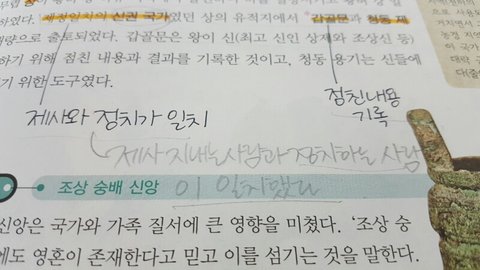 하였다. 제정일치의 신권 국가였던 상의 유적지에서 갑골문과 청동 제
량으로 출토되었다. 갑골문은 왕이 신(최고 신인 상제와 조상신 등)
하기 위해 점친 내용과 결과를 기록한 것이고, 청동 용기는 신들에
기 위한 도구였다.
제사와 정치가 일치
점친내용
기록
제사 지내는 사람과 정치하는 사람
이 일치했다
조상 숭배 신앙
신앙은 국가와 가족 질서에 큰 영향을 미쳤다. '조상 숭
에도 영혼이 존재한다고 믿고 이를 섬기는 것을 말한다.